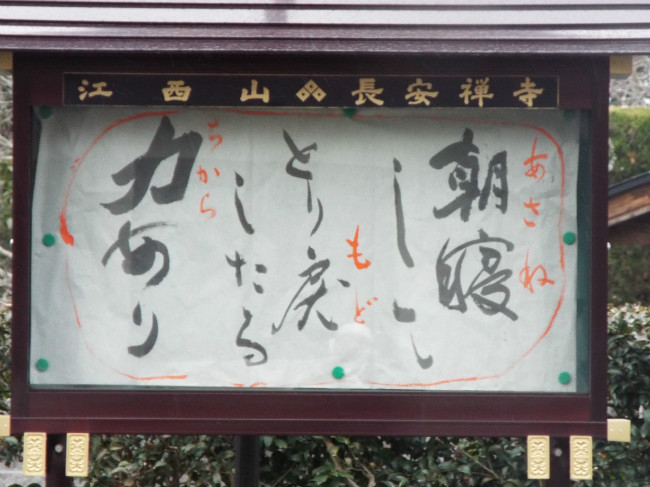 江西山 長安禅寺
朝寝
あさね
して
とり戻
もど
したる
力あり
ちから